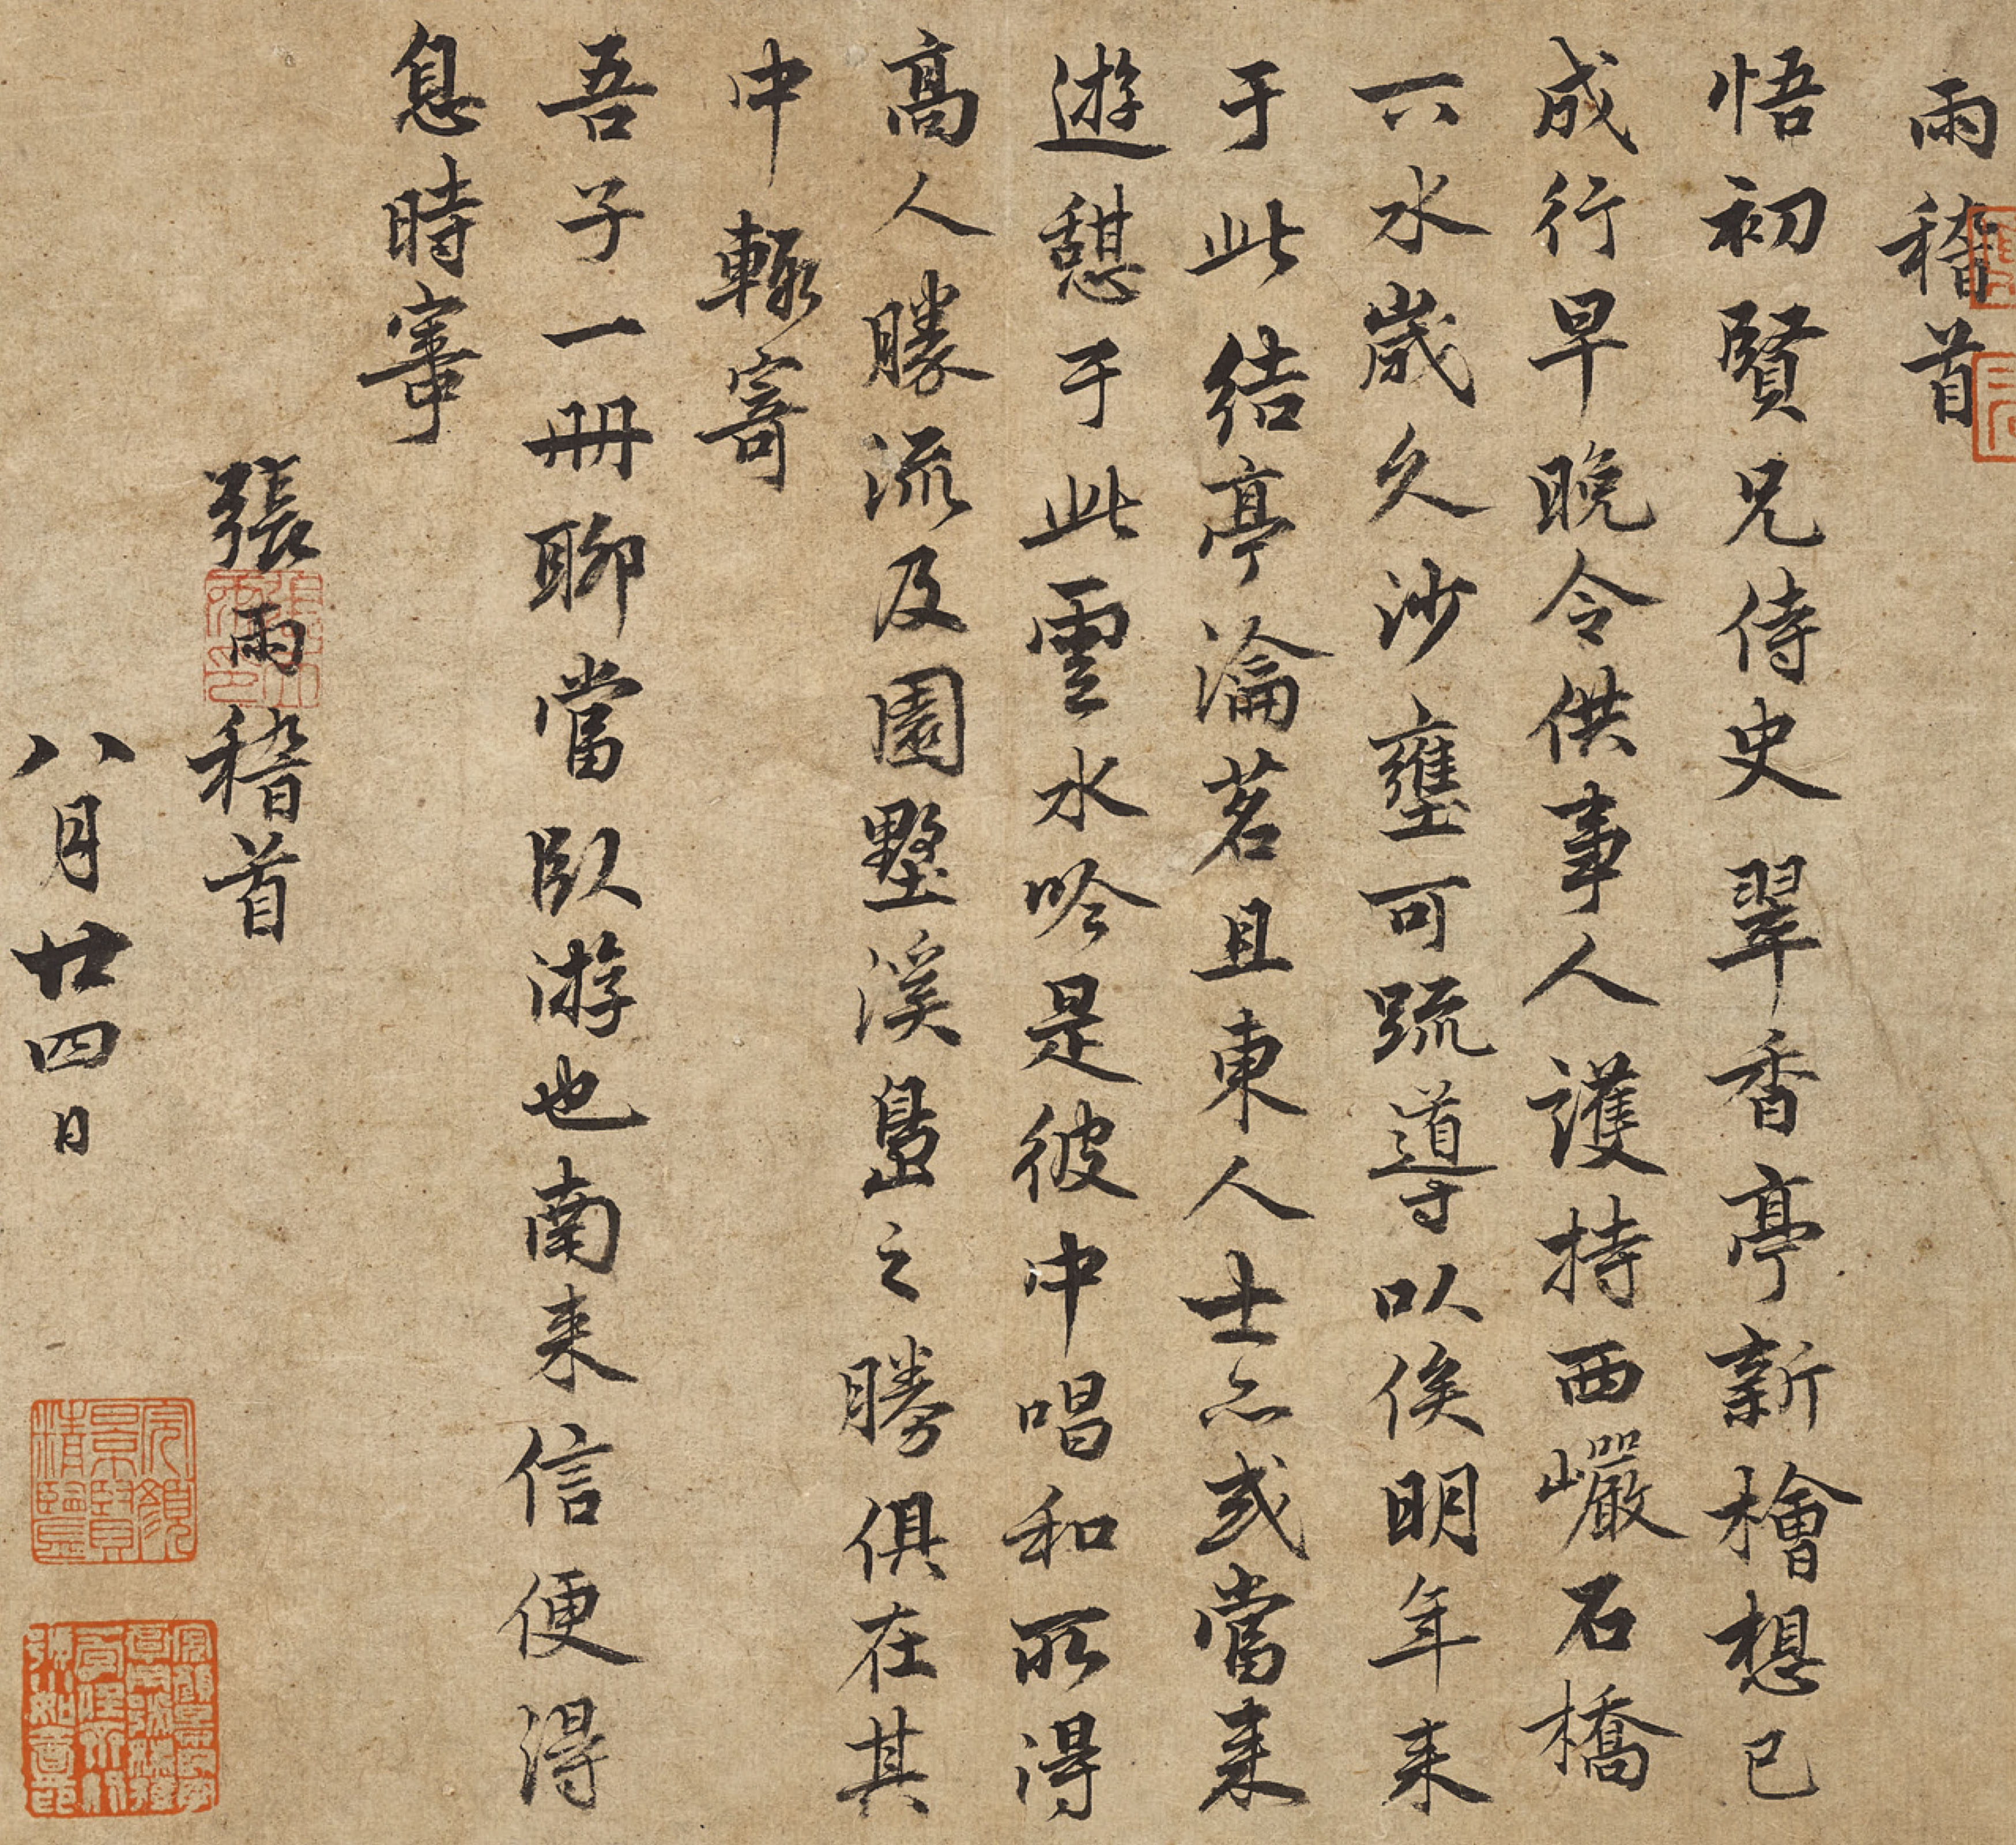 雨稽首
悟初賢兄侍史翠香亭新檜想已
成行早晚令供事人護持西巖石橋
下水歲久沙壅可疏導以俟明年来
于此結亭瀹茗且東人士亦或當来
遊憩于此雲水吟是彼中唱和所得
高人勝流及園墅溪島之勝俱在其
中輙寄
吾子一冊聊當臥游也南来信便得
息時寄
張雨稽首
八月廿四日
完顏景賢精鑒